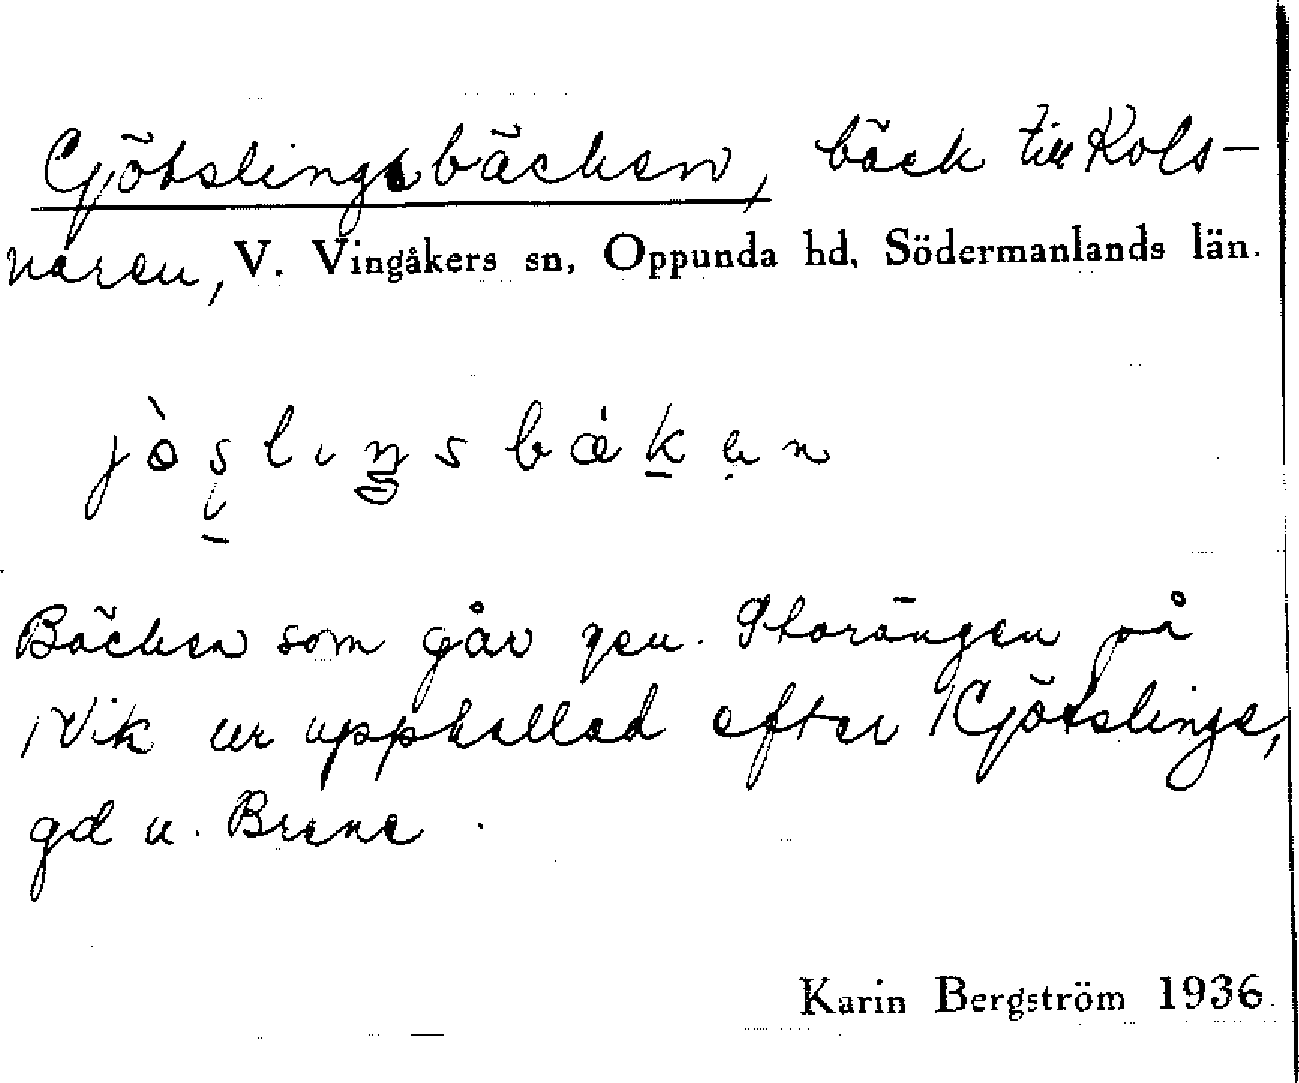 Gjötslingsbäcken, bäck till Kols-
naren, V. Vingåkers sn, Oppunda hd, Södermanlands län.
jòs̨lıŋsbækən
Bäcken som går gen. Storängen på
Vik är uppkallad efter Gjötslinge,
gd u. Brene.
Karin Bergström 1936.